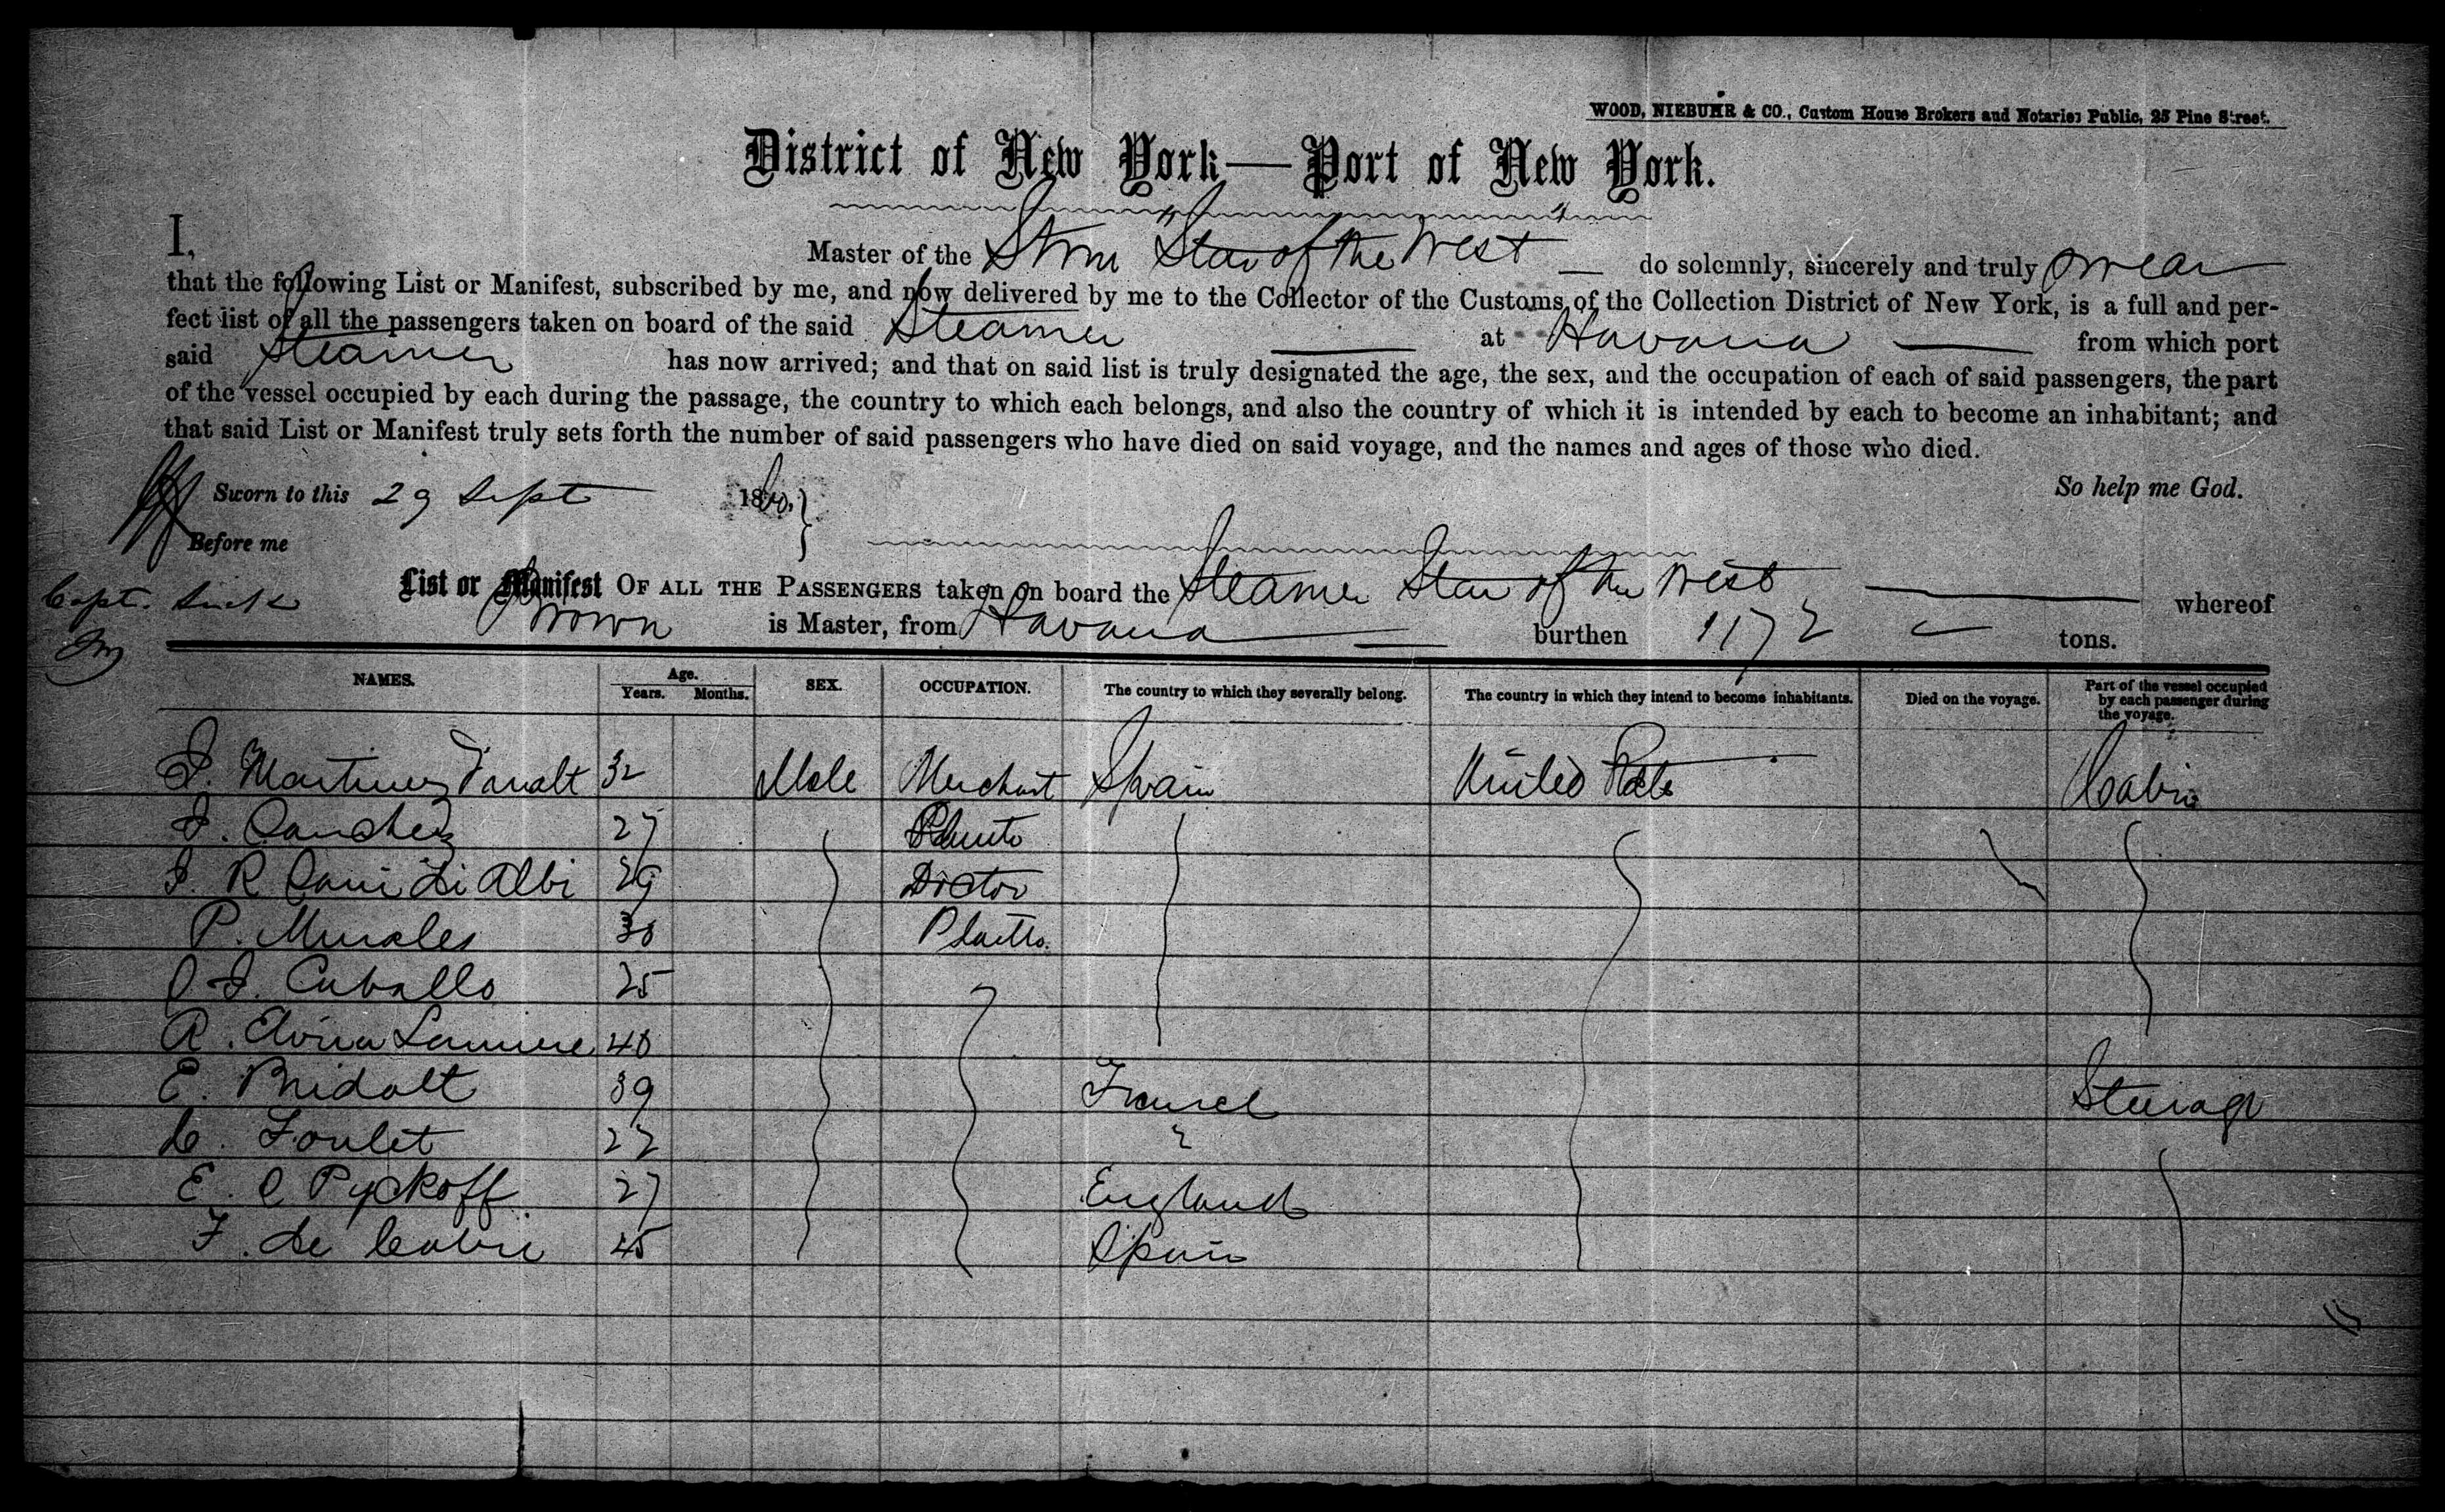 WOOD, NIEBUHR & CO., Custom House Brokers and Notaries Public, 25 Pine Street.
District of New York—Port of New York.
I, Master of the Stmr "Star of the West" do solemnly, sincerely and truly swear
that the following List or Manifest, subscribed by me, and now delivered by me to the Collector of the Customs of the Collection District of New York, is a full and per-
fect list of all the passengers taken on board of the said Steamer at Havana from which port
said Steamer has now arrived; and that on said list is truly designated the age, the sex, and the occupation of each of said passengers, the part
of the vessel occupied by each during the passage, the country to which each belongs, and also the country of which it is intended by each to become an inhabitant; and
that said List or Manifest truly sets forth the number of said passengers who have died on said voyage, and the names and ages of those who died.
Sworn to this 29 Sept 1860. So help me God.
Before me
List or Manifest OF ALL THE PASSENGERS taken on board the Steamer Star of the West whereof
Capt. sick
Brown is Master, from Havana burthen 1172 tons.
NAMES. Age. Years. Months. SEX. OCCUPATION. The country to which they severally belong. The country in which they intend to become inhabitants. Died on the voyage. Part of the vessel occupied by each passenger during the voyage.
J. Martinez 32 Male Merchant Spain United States Cabin
J. Sanchez 27
J. R 29 Doctor
P. Murales 30
J. Caballo 25
A. Elvira 40
E. Bridalt 39 France Steerage
Foulet 22 "
E. C Pyckoff 27 England
F. de 45 Spain